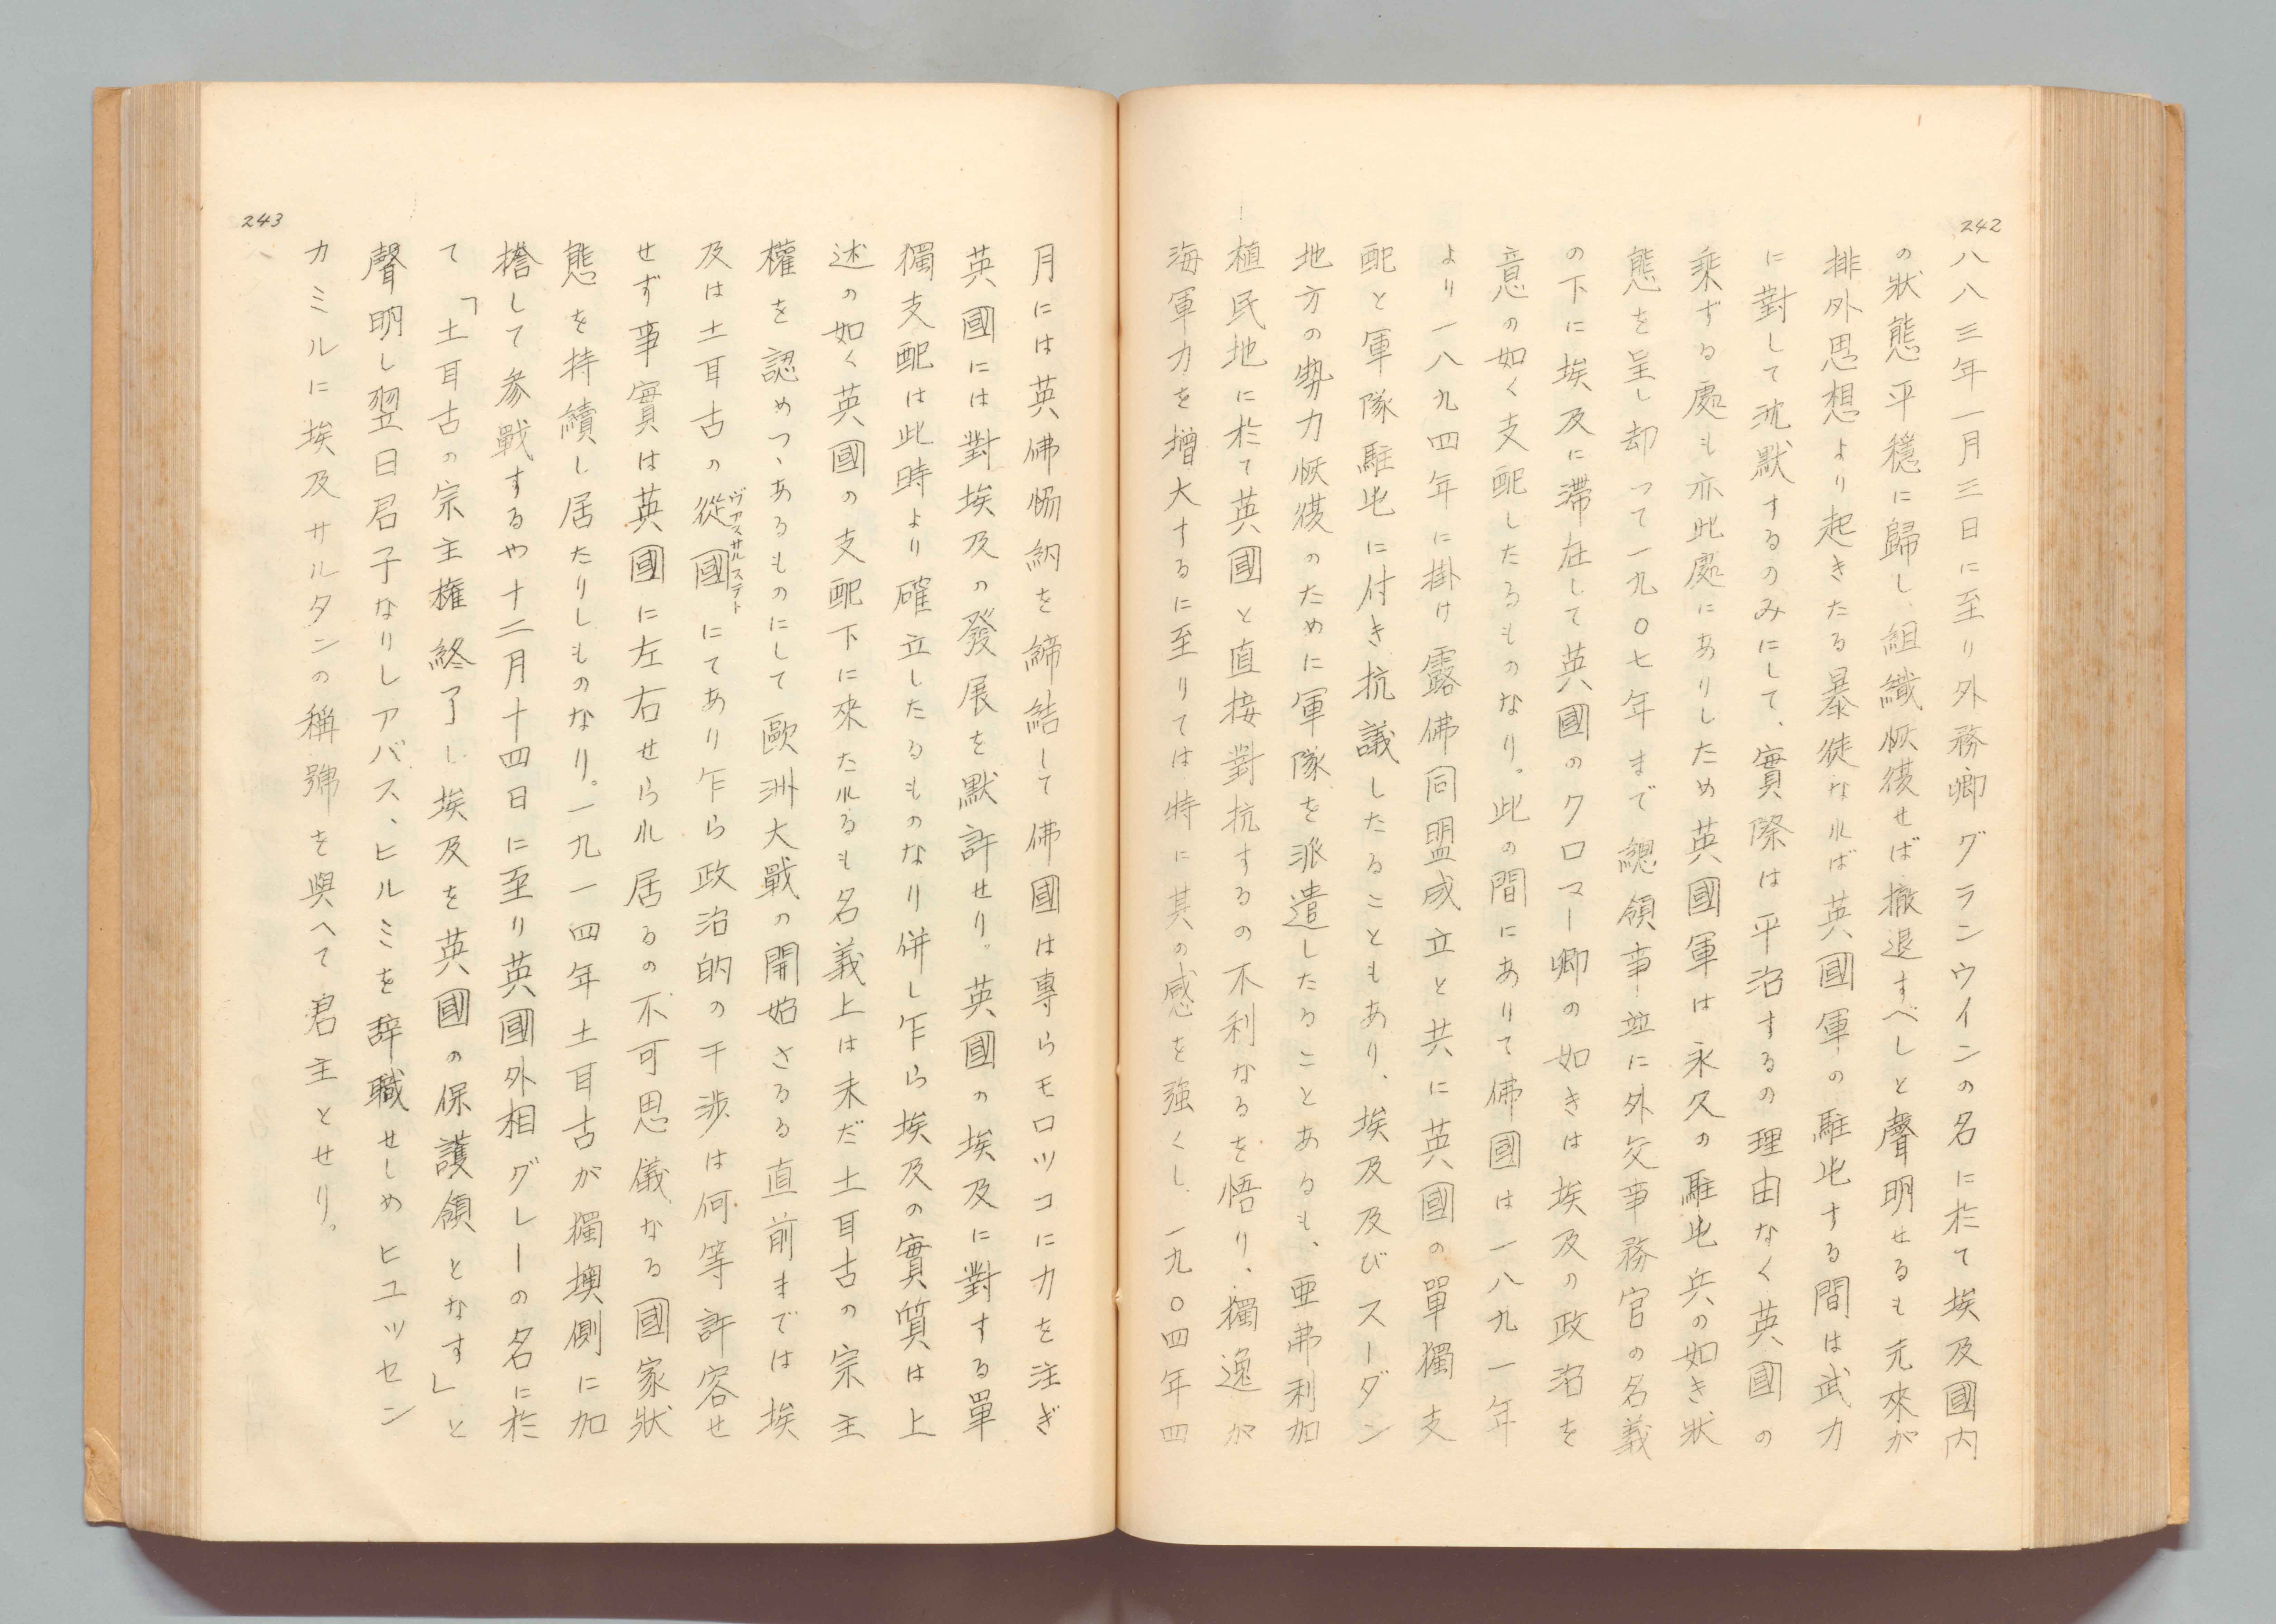 242
八八三年一月三日に至り外務卿グランウインの名に於て埃及國内
の狀態平穩に歸し、組織恢復せば撤退すべしと聲明せるも元來が
排外思想より起きたる暴徒なれば英國軍の駐屯する間は武力
に對して沈默するのみにして、實際は平治するの理由なく英國の
乘ずる處も亦此處にありしため英國軍は永久の駐屯兵の如き狀
態を呈し却って一九〇七年まで總領事竝に外交事務官の名義
の下に埃及に滯在して英國のクロマー卿の如きは埃及の政治を
意の如く支配したるものなり。此の間にありて佛國は一八九一年
より一八九四年に掛け露佛同盟成立と共に英國の單獨支
配と軍隊駐屯に付き抗議したることもあり、埃及及びスーダン
地方の勢力恢復のために軍隊を派遣したることあるも、亜弗利加
植民地に於て英國と直接對抗するの不利なるを悟り、獨逸が
海軍力を增大するに至りては特に其の感を強くし、一九〇四年四
243
月には英佛協約を締結して佛國は專らモロツコに力を注ぎ
英國には對埃及の發展を默許せり。英國の埃及に對する單
獨支配は此時より確立したるものなり併し乍ら埃及の實質は上
述の如く英國の支配下に來たれるも名義上は未だ土耳古の宗主
權を認めつゝあるものにして歐洲大戰の開始さるる直前までは埃
及は土耳古の從國ヴアスサルステトにてあり乍ら政治的の干渉は何等許容せ
せず事實は英國に左右せられ居るの不可思儀なる國家狀
態を持續し居たりしものなり。一九一四年土耳古が獨墺側に加
擔して參戰するや十二月十四日に至り英國外相グレーの名に於
て「土耳古の宗主權終了し埃及を英國の保護領となす」と
聲明し翌日君子なりしアバス、ヒルミを辞職せしめヒユツセン
カミルに埃及サルタンの稱號を與へて君主とせり。